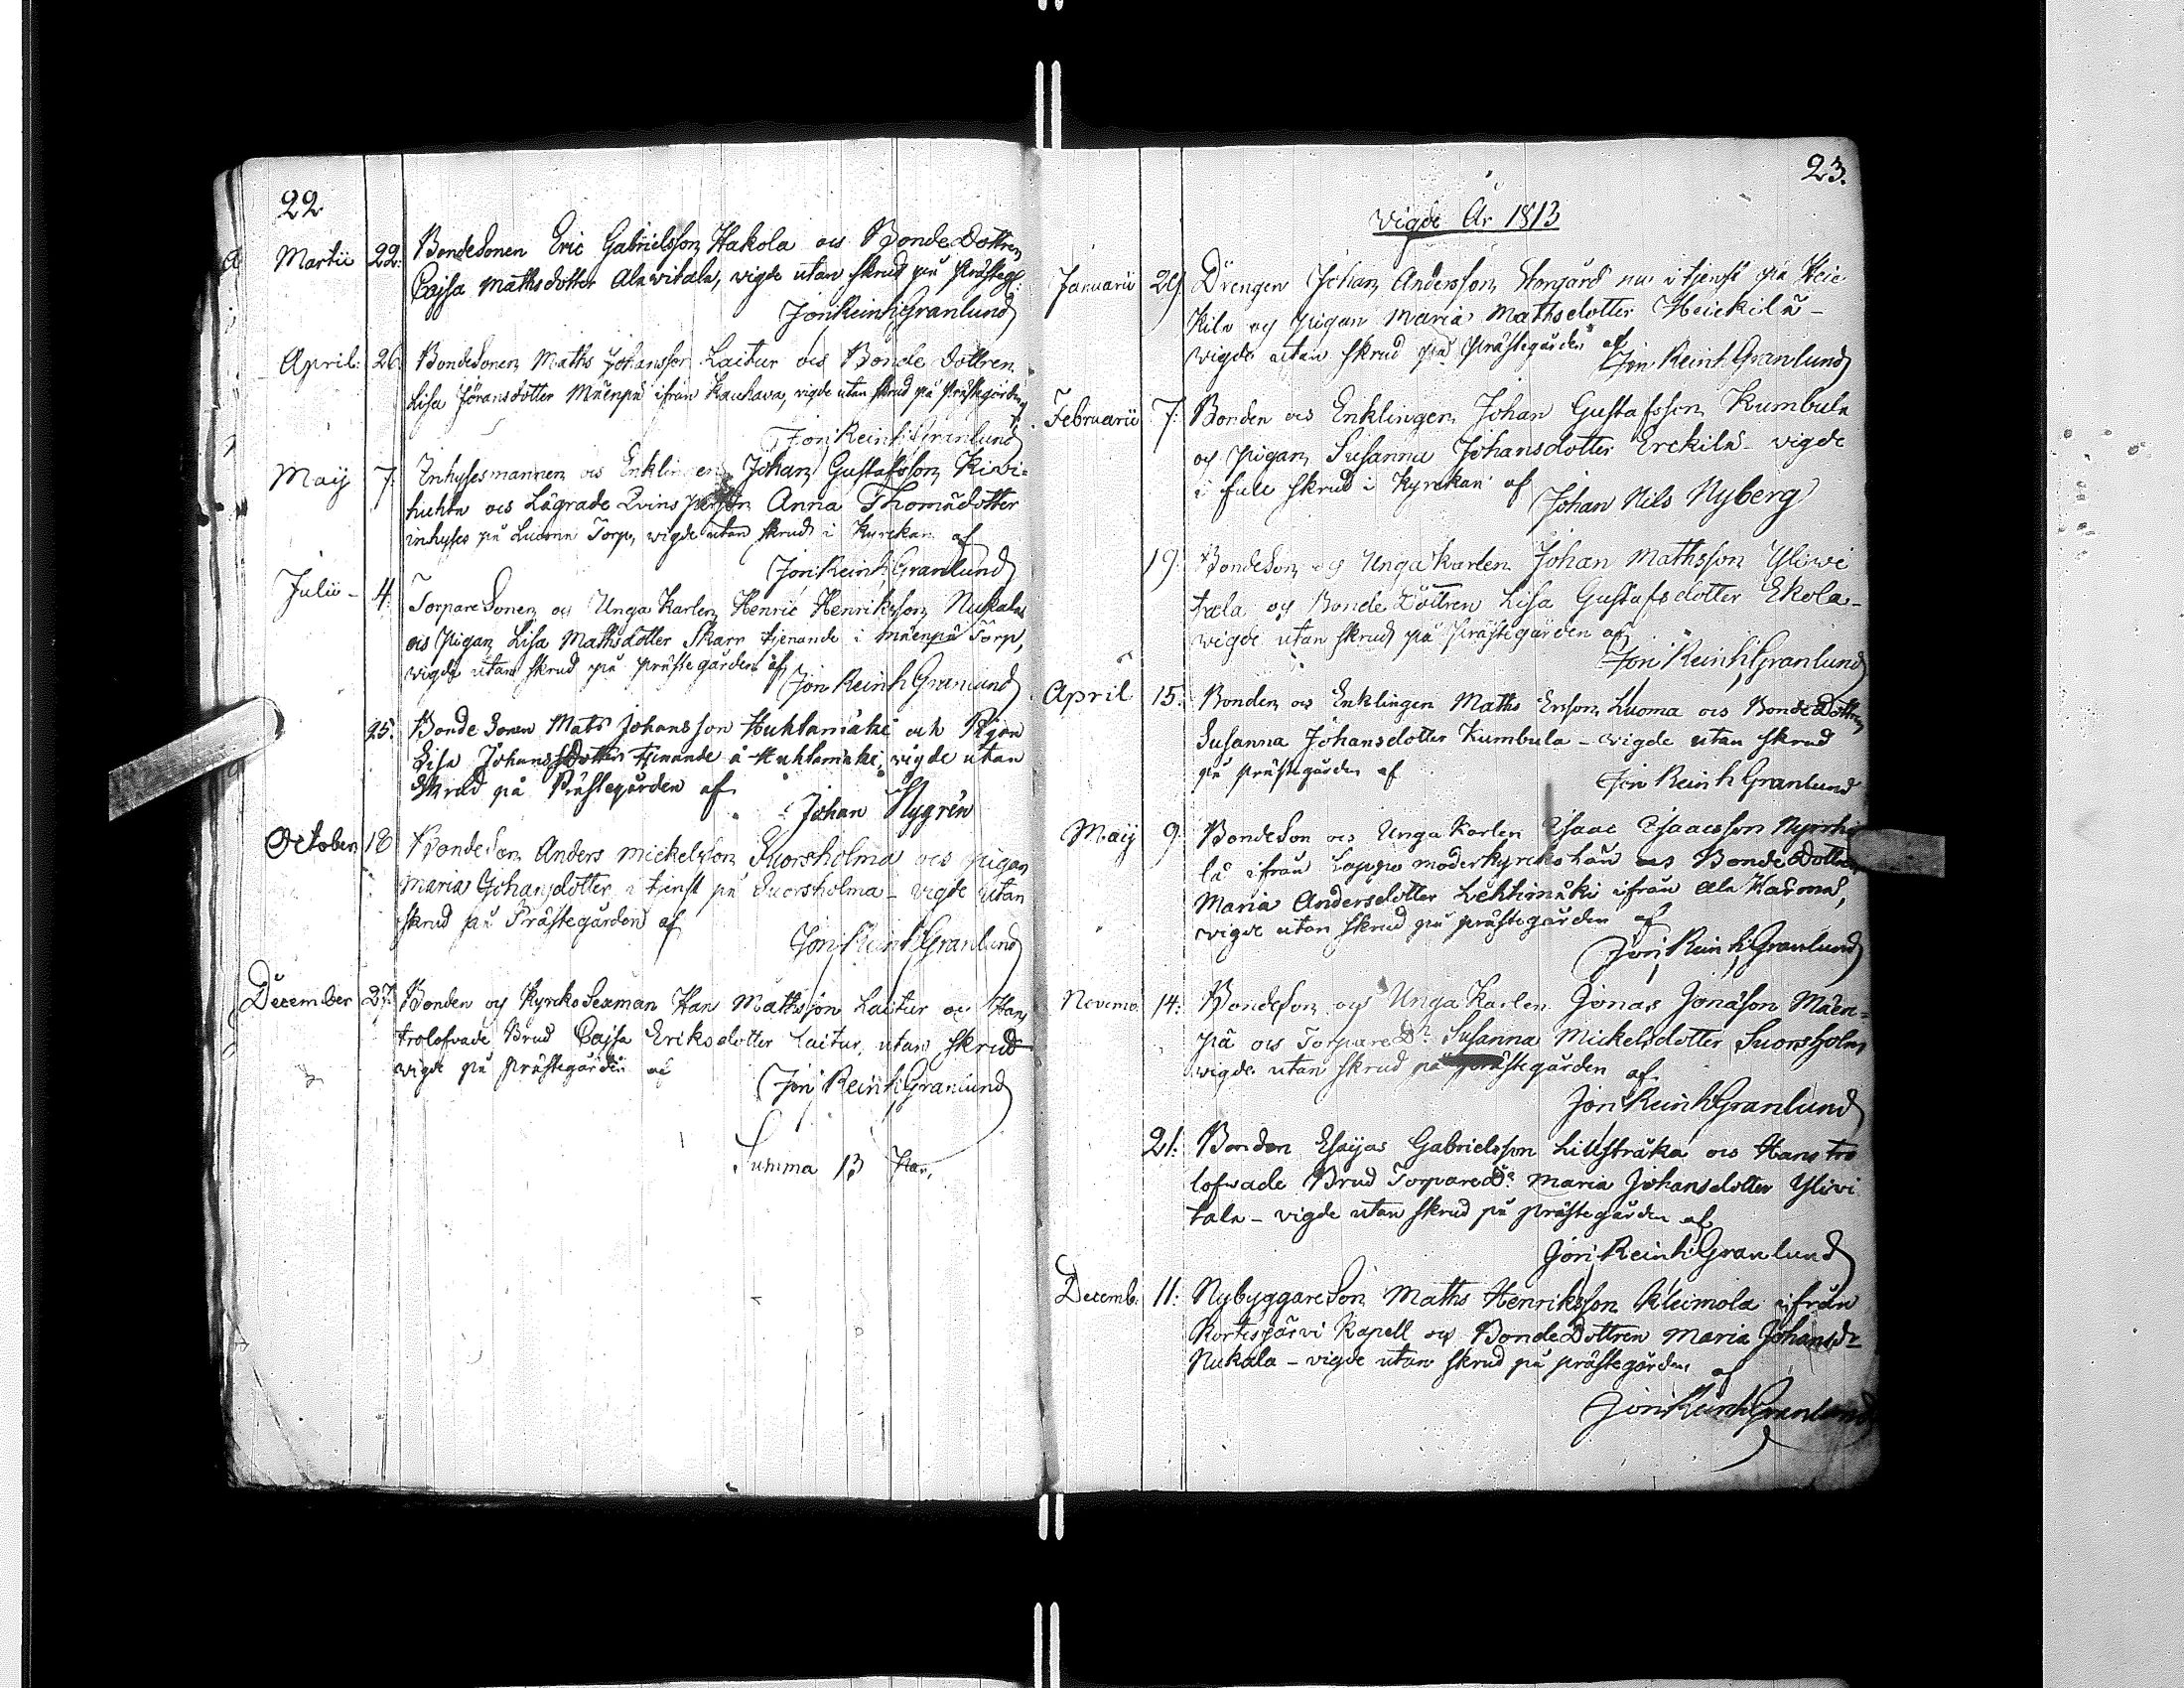 22
Martii 22: BondeSonen Eric Gabrielsson Hakola ocs BondeDottren
Cajsa Mathsdotter Alawitala, vigde utan skrud på prästeg:
Jon Reinh Granlund
April: 26. BondeSonen Maths Johansson Laitur ocs Bonde dottren
Lisa Jöransdotter Mäenpä ifrån Kauhava, vigde utan skrud på prästegården
Jon Reinh Granlund
Maij 7: Inhysesmannen ocs Enklingen Johan Gustafsson Kiwi-
huhta ocs Lägrade Qvins Anna Thomædotter
inhyses på Luoma Torp, vigde utan skrud i Kyrckan af
Jon Reinh Granlund
Julii - 4: TorpareSonen ocs Unga Karlen Henric Henriksson Nukala
ocs Pigan Lisa Mathsdotter Skarr tjenande i Mäenpä Torp,
vigde utan skrud på prästegården af
Jon Reinh Granlund
25. Bonde Sonen Mats Johansson Huhtamäki och Pigan
Lisa Johans Dotter tjenande å Huhtamäki, vigde utan
Skrud på Prästegården af
Johan Nygrén
October 18 BondeSon Anders Mickelsson Suorsholma ocs pigan
Maria Johansdotter i tjenst på Suorsholma - vigde utan
skrud på Prästegården af
Jon Reinh Granlund
December 27: Bonden og Kyrcko Sexman Han Mathsson Laitur og Hans
trolofvade Brud Cajsa Eriksdotter Laitur, utan skrud
vigde på prästegården af
Jon Reinh Granlund
Summa 13 Par.
23.
Vigde År 1813
Januarii 29. Drengen Johan Andersson Storgård nu i tjenst på Heic
kila og pigan Maria Mathsdotter Heickilä -
vigde utan skrud på prästegården af
Jon Reinh Granlund
Februarii 7: Bonden ocs Enklingen Johan Gustafsson Kumbula
og pigan Susanna Johansdotter Erckilä - vigde
i full skrud i Kyrckan af Johan Nils Nyberg
19. BondeSon og Unga Karlen Johan Mathsson Yliwi
tala og Bonde Dottren Lisa Gustafsdotter Ekola -
vigde utan skrud på prästegården af
Jon Reinh Granlund
April 15: Bonden ocs Enklingen Maths Ersson Luoma ocs Bonde Dottren
Susanna Johansdotter Kumbula - vigde utan skrud
på prästegården af
Jon Reinh Granlund
Maij 9: BondeSon ocs Unga Karlen Isaac Isaacsson Nyrrhi
lä ifrån Lappo moderkyrcko ocs Bonde Dottren
Maria Andersdotter Lehtimäki ifrån Ala Härmä,
vigde utan skrud på prästegården af
Jon Reinh Granlund
Novemb 14: BondeSon ocs Unga Karlen Jonas Jonasson Mäen-
pä ocs Torpare Dr Susanna Mickelsdotter Suorsholm
vigde utan skrud på prästegården af
Jon Reinh Granlund
21: Bonden Esaijas Gabrielsson Lillstråka ocs Hans tro
lofvade Brud Torpare Dr Maria Johansdotter Yliwi
tala - vigde utan skrud på prästegården af
Jon Reinh Granlund
Decemb. 11: NybyggareSon Maths Henriksson Kleimola ifrån
Kortesjärvi Kapell og Bonde Dottren Maria Johansdr
Nukala - vigde utan skrud på prästegården af
Jon Reinh Granlund